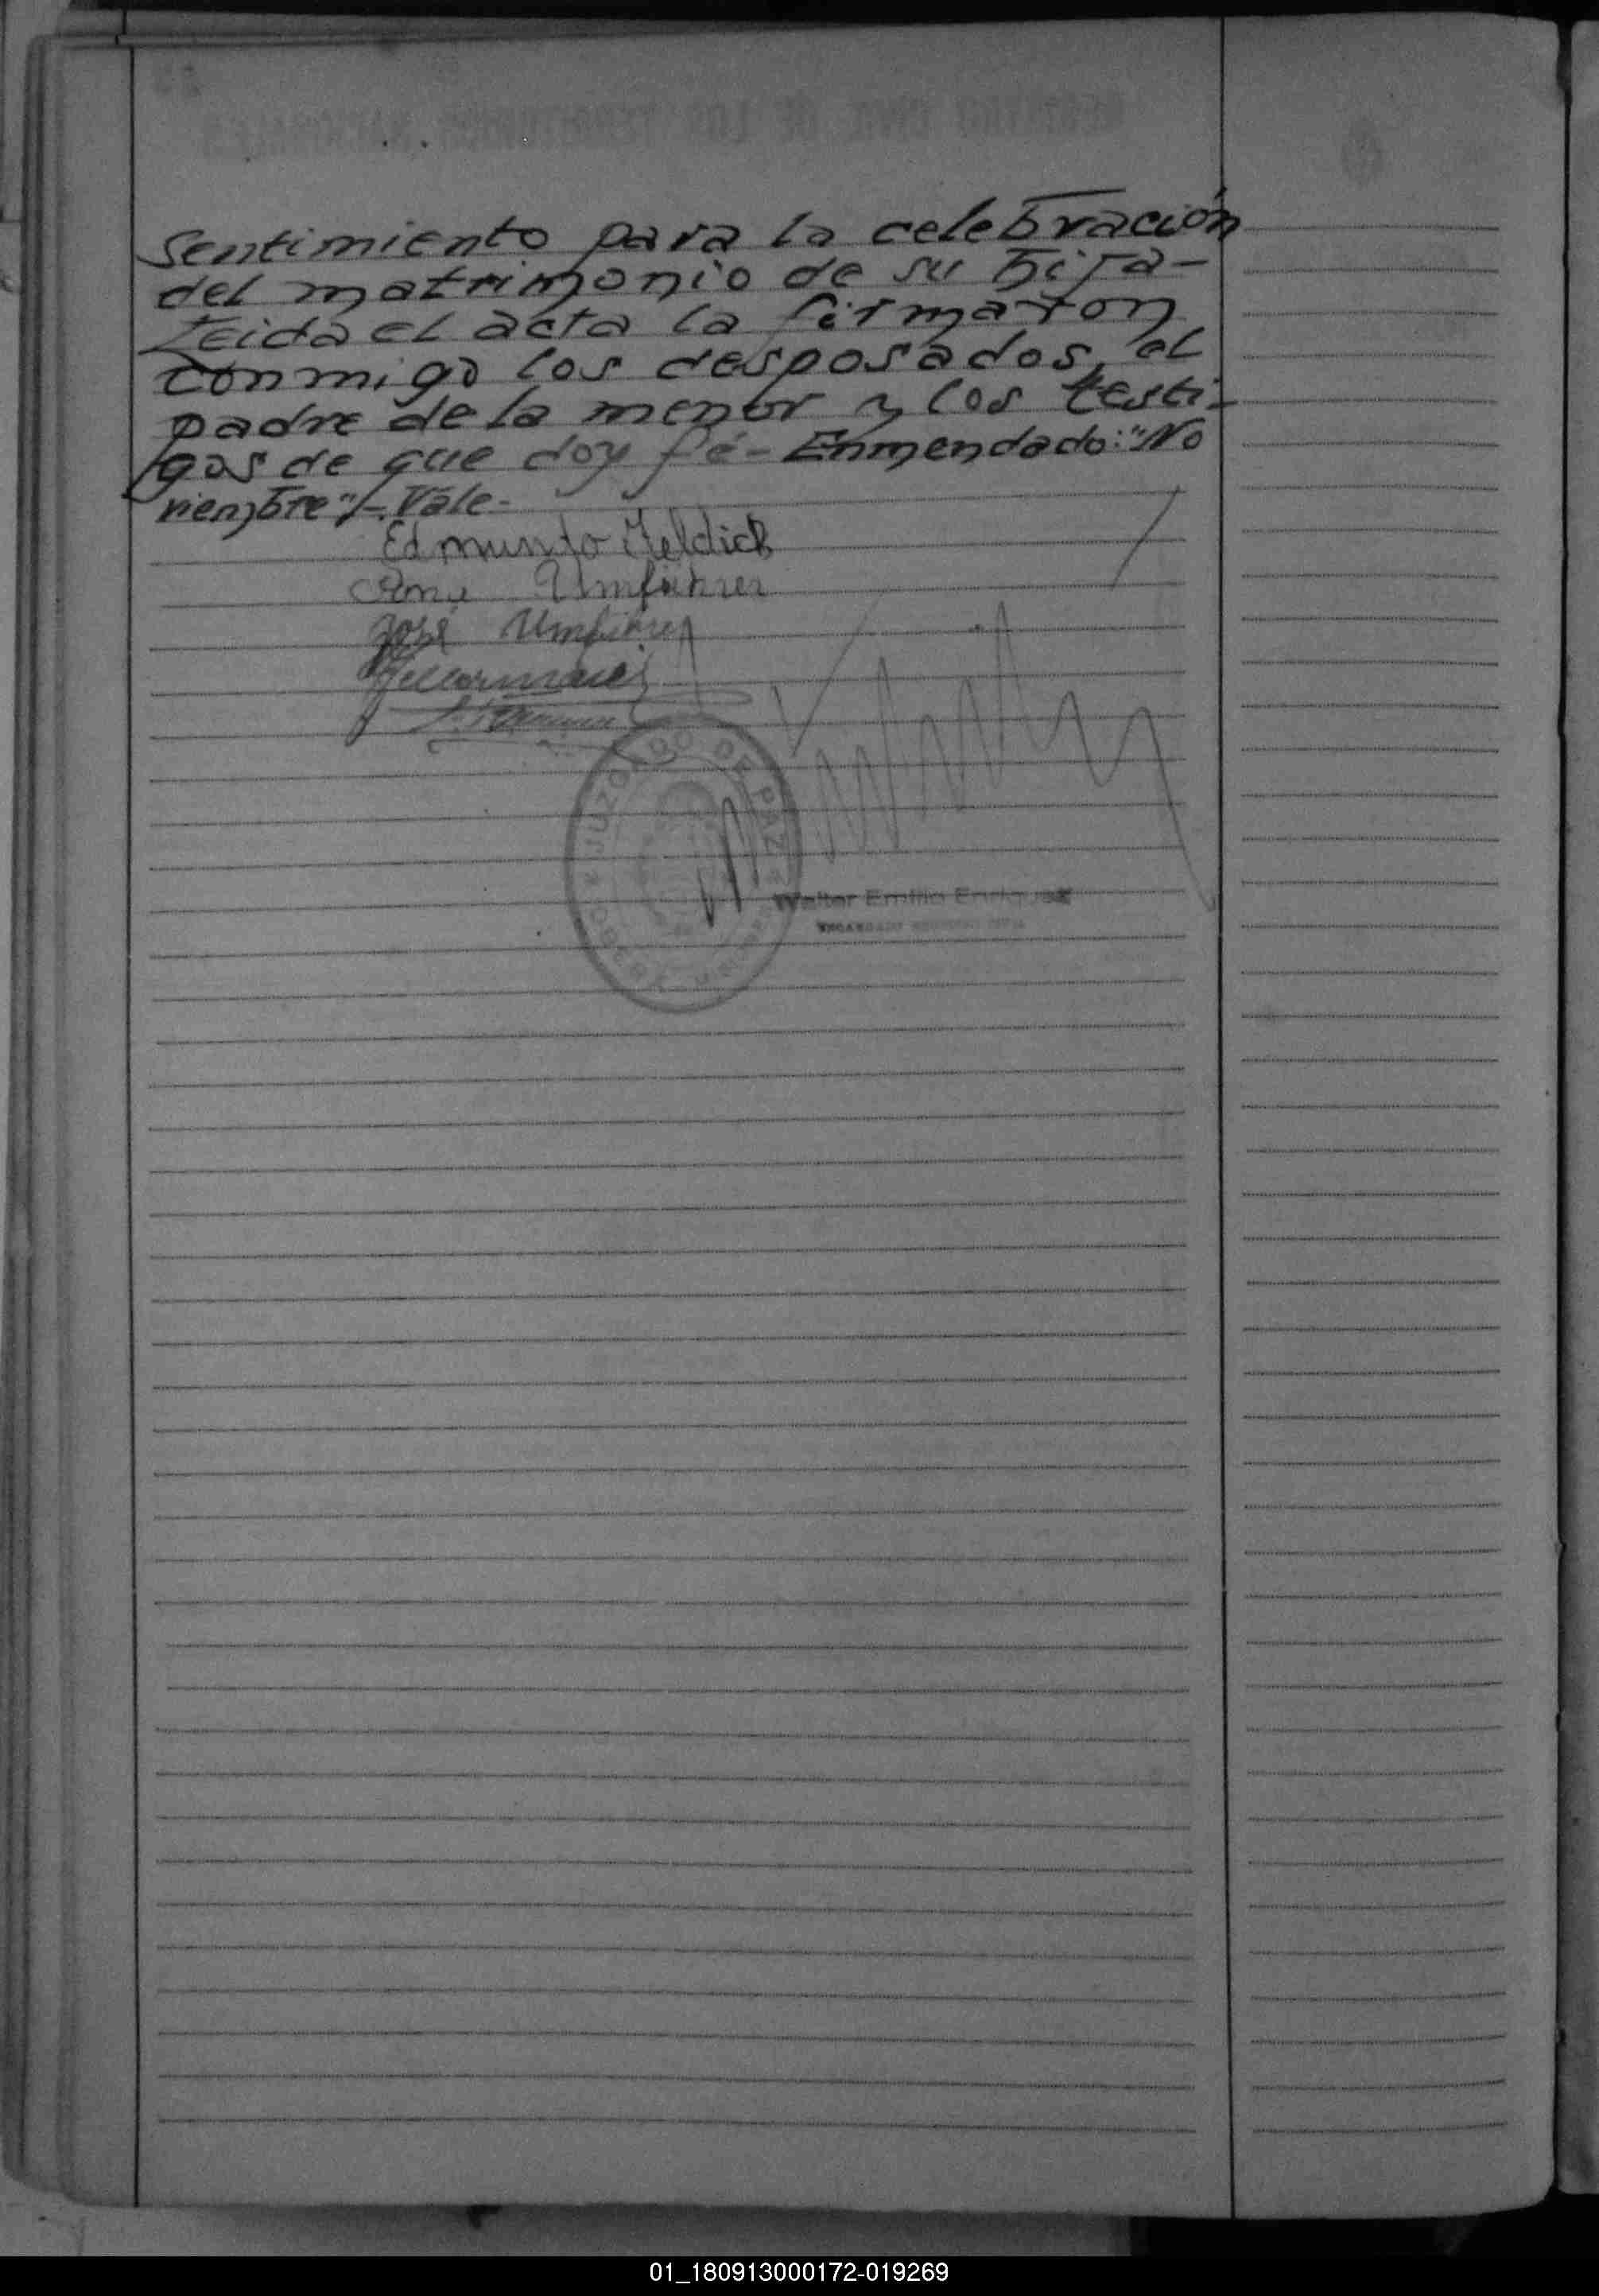 sentimiento para la celebración
del matrimonio de su hija-
Leida el acta la firmaron
conmigo los desposados, el
padre de la menor y los testi-
gos de que doy fé- Enmendado: "No
viembre"/- Vale-
Edmundo
Umfuhrer
José
JUZGADO DE PAZ
Walter Emilio Enriquez
01_180913000172-019269